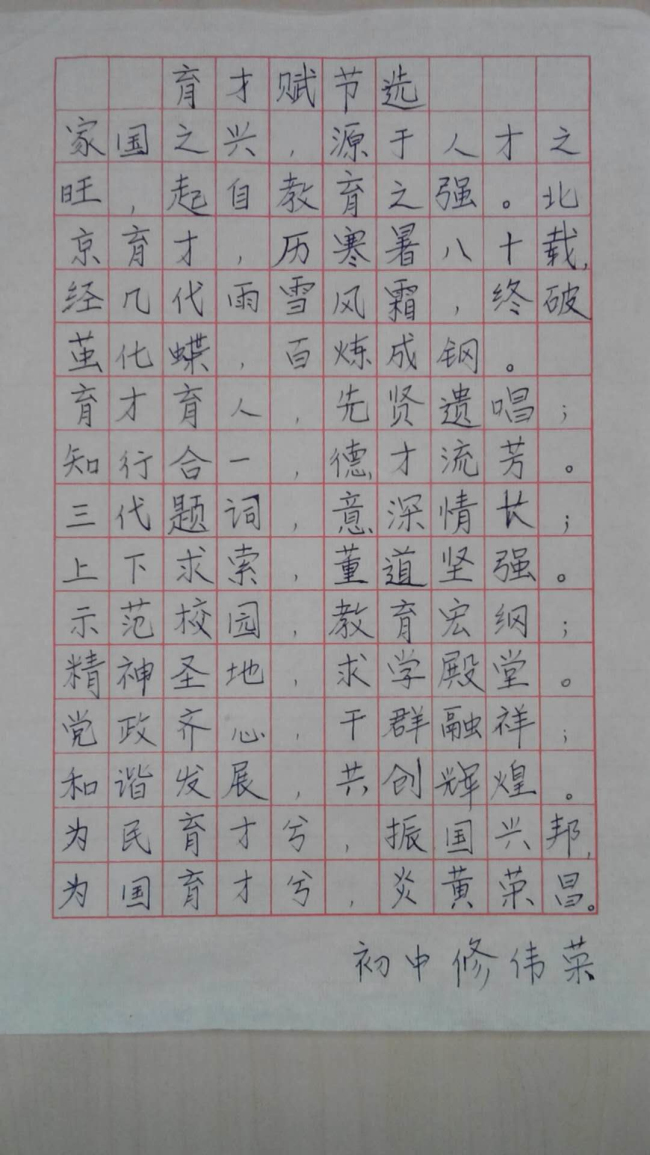 育才赋节选
家国之兴，源于人才之
旺，起自教育之强。北
京育才，历寒暑八十载，
经几代雨雪风霜，终破
茧化蝶，百炼成钢。
育才育人，先贤遗唱；
知行合一，德才流芳。
三代题词，意深情长；
上下求索，董道坚强。
示范校园，教育宏纲；
精神圣地，求学殿堂。
党政齐心，干群融祥；
和谐发展，共创辉煌。
为民育才兮，振国兴邦，
为国育才兮，炎黄荣昌。
初中修伟荣